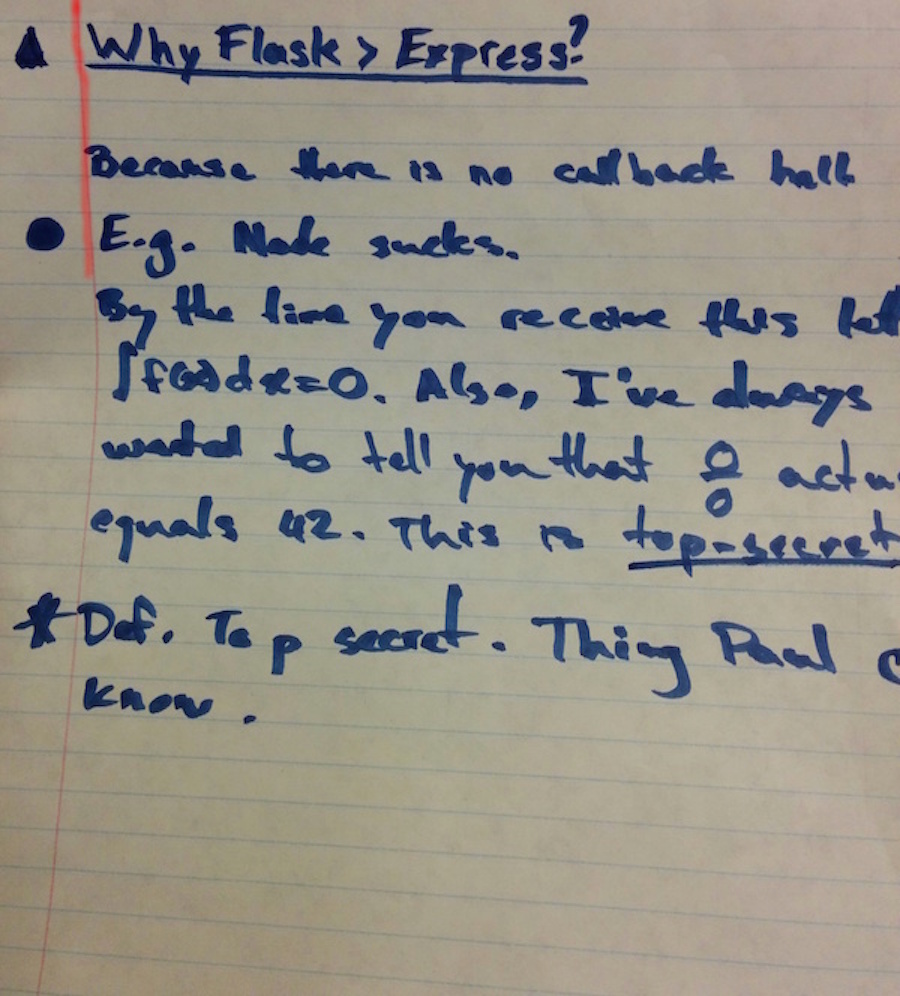 ▲ Why Flask > Express?
Because there is no callback hell
● E.g. Node sucks.
By the time you receive this lett
∫f(x)dx=0. Also, I've always
wanted to tell you that 0/0 actua
equals 42. This is top-secret
* Def. Top secret. Thing Paul
know.